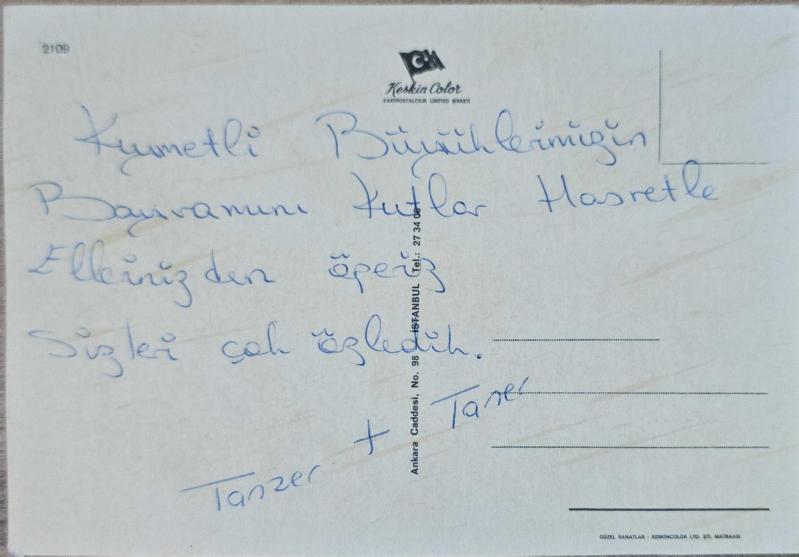 2109
Keskin Color
KARTPOSTALCILIK LIMITED ŞİRKETİ
Kıymetli Büyüklerimizin
Bayramını Kutlar Hasretle
Ellerinizden öperiz
Sizleri çok özledik.
Tanzer + Taner
Ankara Caddesi, No. 98 İSTANBUL Tel.: 27 34 08
GÜZEL SANATLAR - KESKİNCOLOR LTD. ŞTİ. MATBAASI